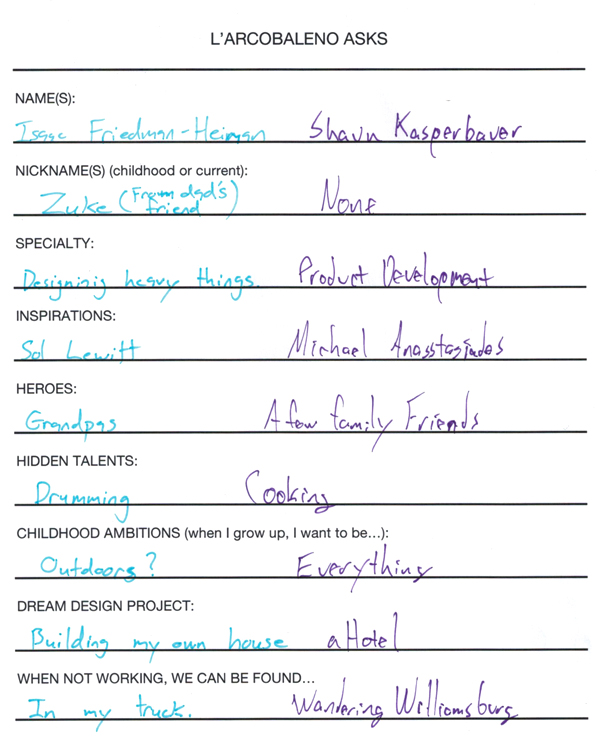 L'ARCOBALENO ASKS
NAME(S):
Isaac Friedman-Heiman Shaun Kasperbauer
NICKNAME(S) (childhood or current):
Zuke (From dad's friend) None
SPECIALTY:
Designing heavy things. Product Development
INSPIRATIONS:
Sol Lewitt Michael Anasstasiades
HEROES:
Grandpas A few family Friends
HIDDEN TALENTS:
Drumming Cooking
CHILDHOOD AMBITIONS (when I grow up, I want to be...):
Outdoors? Everything
DREAM DESIGN PROJECT:
Building my own house a Hotel
WHEN NOT WORKING, WE CAN BE FOUND...
In my truck. Wandering Williamsburg